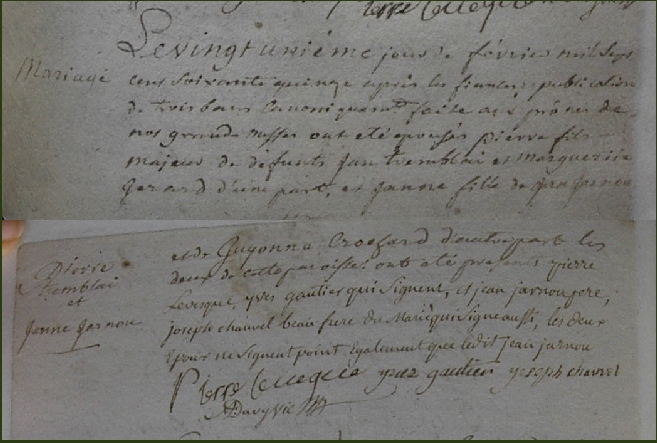 Pierre Levesque
Le vingt unième jour de février mil sept
Mariage
cens soixante quinze après les fiances et publication
de trois bans canoniquemt faite aux prônes de
nos grandes messes ont été épousés pierre fils
majeur de defunts Jan tremblai et marguerite
Gerard d'une part, et janne fille de jan jarnou
et de Guyonne Croesard d'autre part les
deux de cette paroisse. ont été presens pierre
Levesque, yves gautier qui signent, et jean jarnou pere,
joseph chauvel beau frere du Marié qui signe aussi, les deux
Epoux ne signent point Egalement que ledit jean jarnou
Pierre
tremblai
et
Janne Jarnou
Pierre levesque yves gautier joseph chauvel
Davy Vic